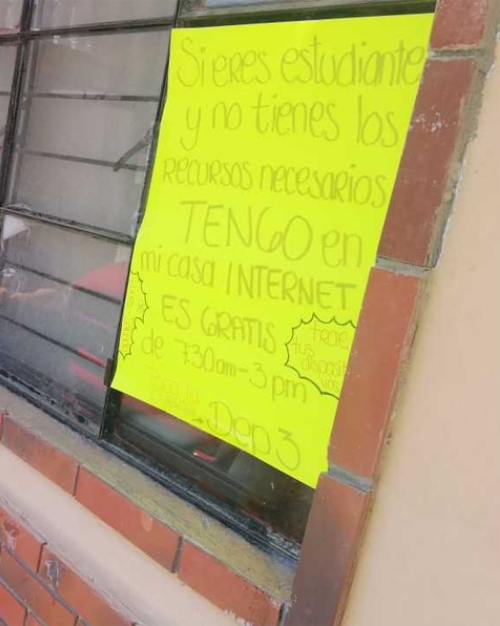 Si eres estudiante
y no tienes los
RECURSOS necesarios
TENGO en
mi casa INTERNET
ES GRATIS
de 7:30 am - 3 pm
trae
tus
dispositi
vos
Dep 3